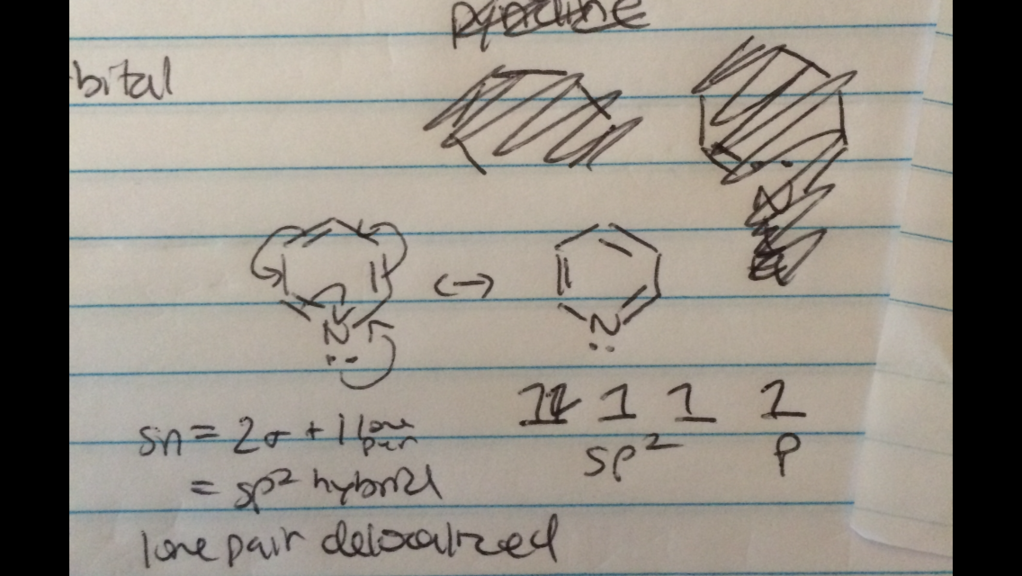 pyridine
bital
N
N
N
sn = 2σ + 1 lone pair
= sp² hybrid
lone pair delocalized
1↿ 1 1 1
sp² p